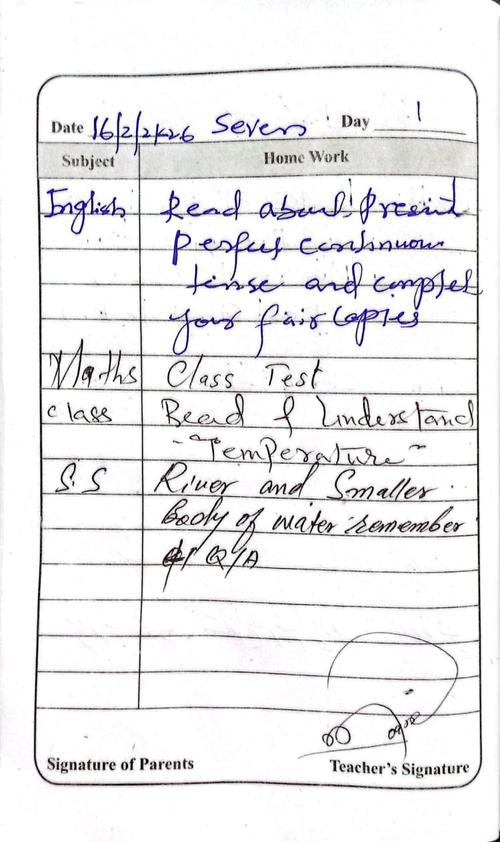 Date 16/2/2k26 Seven Day 1
Subject Home Work
English Read about Present
perfect continuous
tense and complet
your fair copies
Maths Class Test
class Read & Understand
"Temperature"
S.S River and Smaller
body of water remember
Q/A
Signature of Parents Teacher's Signature